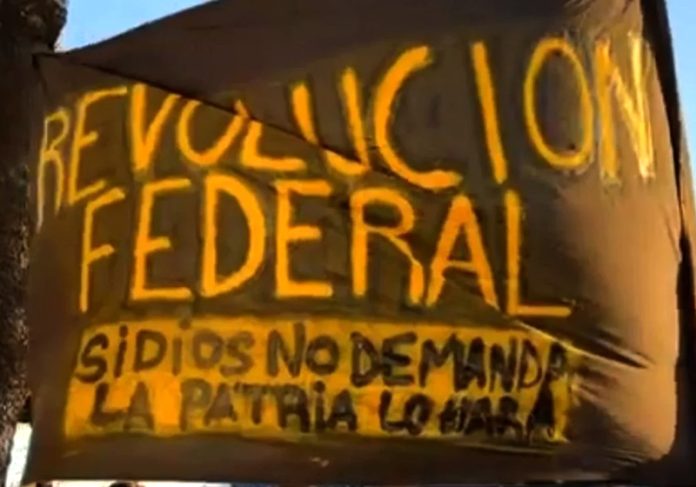 REVOLUCION
FEDERAL
SiDiOS NO DEMANDA
LA PATRiA LO HARA